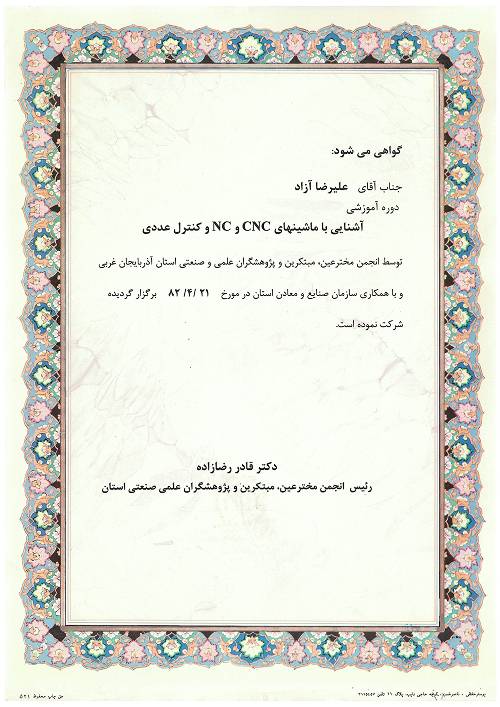 گواهی می شود:
جناب آقای علیرضا آزاد
دوره آموزشی
آشنایی با ماشینهای CNC و NC و کنترل عددی
توسط انجمن مخترعین، مبتکرین و پژوهشگران علمی و صنعتی استان آذربایجان غربی
و با همکاری سازمان صنایع و معادن استان در مورخ ۲۱ /۴/ ۸۲ برگزار گردیده
شرکت نموده است.
دکتر قادر رضازاده
رئیس انجمن مخترعین، مبتکرین و پژوهشگران علمی صنعتی استان
حق چاپ محفوظ ۵۲۱